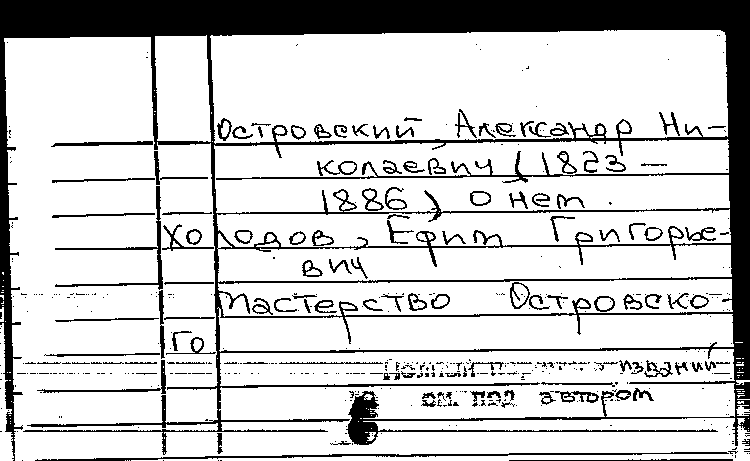 Островский, Александр Ни-
колаевич (1823 –
1886) о нем.
Холодов, Ефим Григорье-
вич
Мастерство Островско-
го
Полный изданий
см. под автором